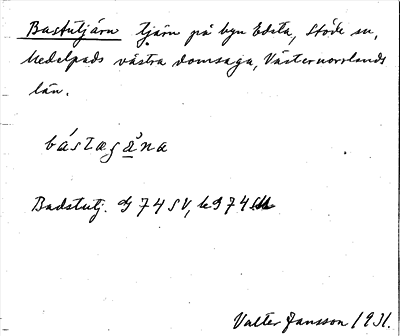 Bastutjärn tjärn på byn Edsta, Stöde sn,
Medelpads västra domsaga, Västernorrlands
län.
bástagä̀na
Badstutj. G 74 SV, k G 74
Valter Jansson 1931.